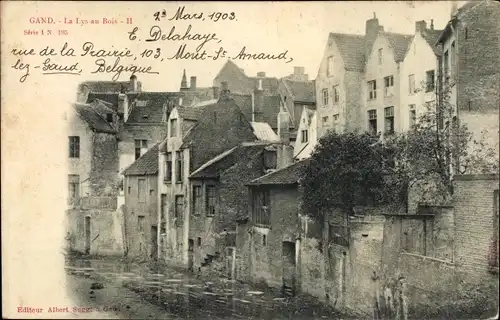 GAND. - La Lys au Bois - II
Série 1 N. 195
9 Mars, 1903.
E. Delahaye,
rue de la Prairie, 103, Mont-St-Amand,
lez-Gand, Belgique
Editeur Albert Sugg à Gand